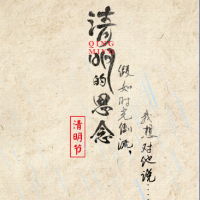 清明的思念
QING
MING
清明节
假如时光倒流，
我想对他说……